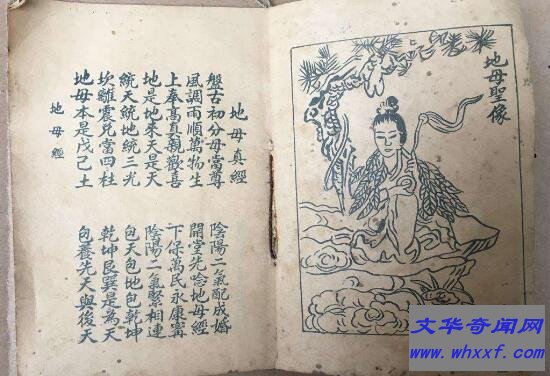 地母聖像
地母真經
盤古初分母當尊 陰陽二氣配成婚
風調雨順萬物生 開堂先唸地母經
上奉高真親歡喜 下保萬民永康寧
地是地來天是天 陰陽二氣緊相連
統天統地統三光 包天包地包乾坤
坎離震兌當四柱 乾坤艮巽是為天
地母本是戊己土 包養先天與後天
地母經
文华奇闻网
www.whxxf.com